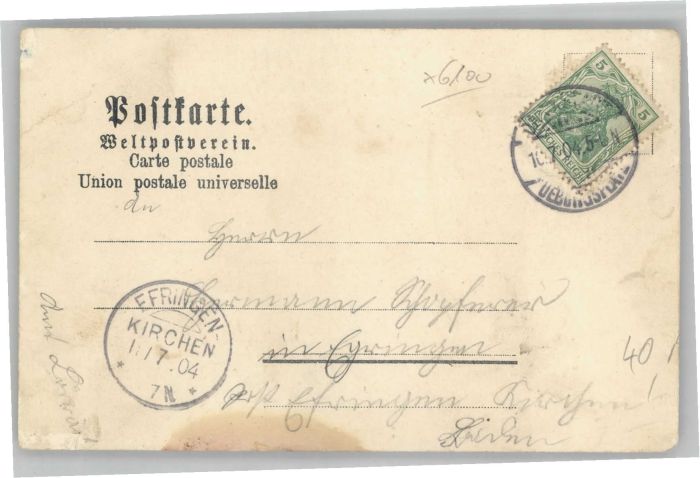 x6100
Postkarte.
Weltpostverein.
Carte postale
Union postale universelle
5
5
10.7.04.5-6N
UEBUNGSPLATZ
An
Herrn
Hermann Schopferer
in Egringen
Post Efringen Kirchen
Baden
EFRINGEN-
KIRCHEN
11/7.04
7N
40